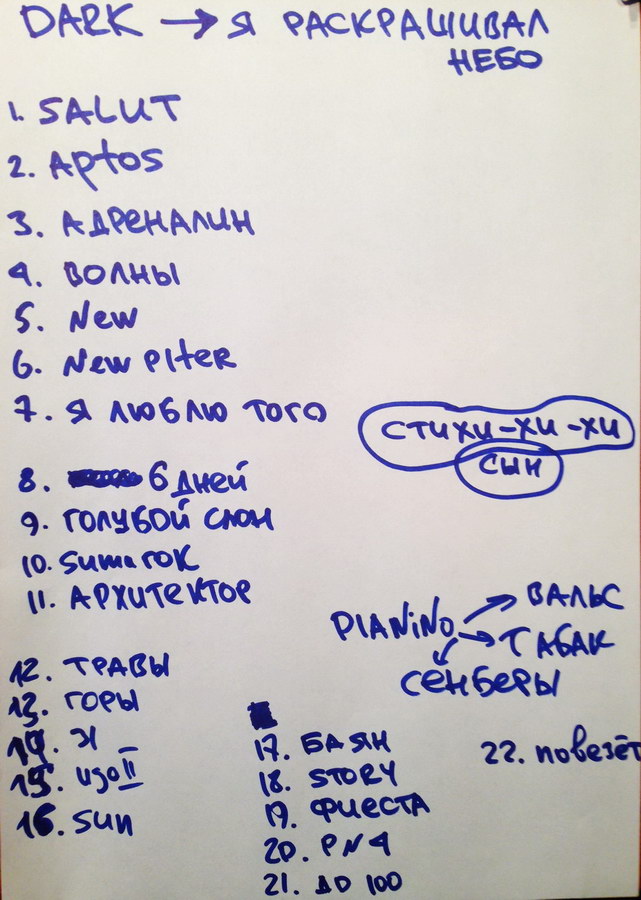 DARK → Я РАСКРАШИВАЛ
НЕБО
1. SALUT
2. Aptos
3. АДРЕНАЛИН
4. ВОЛНЫ
5. New
6. New PIter
7. Я ЛЮБЛЮ ТОГО
СТИХИ-ХИ-ХИ
СЫН
8. 6 ДНЕЙ
9. ГОЛУБОЙ СЛОН
10. SumaРОК
11. АРХИТЕКТОР
PIANiNo → ВАЛЬС
→ ТАБАК
СЕНБЕРЫ
12. ТРАВЫ
13. ГОРЫ
14.
15.
16. Sun
17. БАЯН
18. STORY
19. ФИЕСТА
20. PN4
21. ДО 100
22. ПОВЕЗЁТ